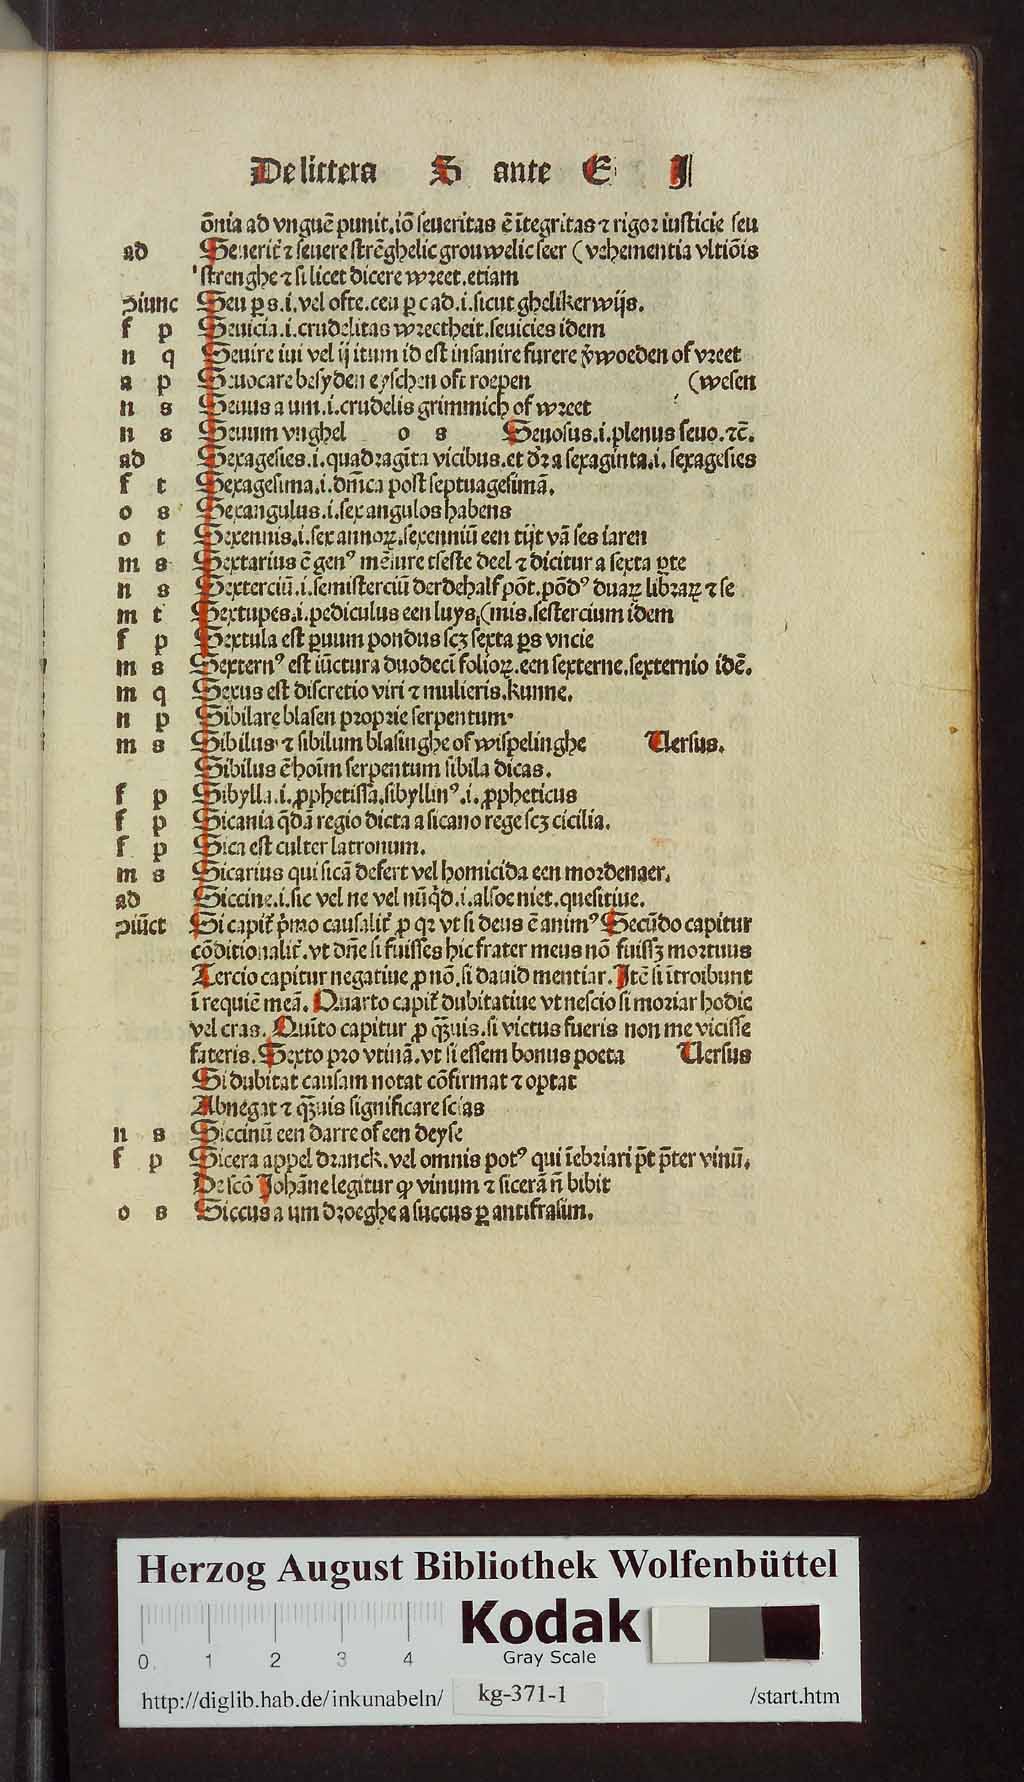 De littera S ante E J
õnia ad vnguẽ punit.iõ seueritas ẽ ĩtegritas ⁊ rigor iusticie seu
ad Seuerit᷑ ⁊ seuere strẽghelic grouwelic seer (vehementia vltiõis
strenghe ⁊ si licet dicere wreet.etiam
ↄiunc Seu ꝑ s.i.vel ofte.ceu ꝑ c ad.i.sicut ghelikerwijs.
f p Seuicia.i.crudelitas wreetheit.seuicies idem
n q Seuire iui vel ij itum id est insanire furere v̾woeden of vreet
a p Seuocare besyden eyschen oft roepen (wesen
n s Seuus a um.i.crudelis grimmich of wreet
n s Seuum vnghel o s Seuosus.i.plenus seuo.⁊c̃.
ad Sexagesies.i.quadragĩta vicibus.et dr̃ a sexaginta.i.sexagesies
f t Sexagesima.i.dñica post septuagesimã.
o s Sexangulus.i.sex angulos habens
o t Sexennis.i.sex annoꝝ.sexenniũ een tijt vã ses iaren
m s Sextarius ẽ genꝰ mẽsure tseste deel ⁊ dicitur a sexta ꝑte
n s Sexterciũ.i.semisterciũ derdehalf põt.põdꝰ duaꝝ libraꝝ ⁊ se
m t Sextupes.i.pediculus een luys (mis.sestercium idem
f p Sextula est ꝑuum pondus scꝫ sexta ꝑs vncie
m s Sexternꝰ est iũctura duodecĩ folioꝝ.een sexterne.sexternio idẽ.
m q Sexus est discretio viri ⁊ mulieris.kunne.
n p Sibilare blasen proprie serpentum.
m s Sibilus ⁊ sibilum blasinghe of wispelinghe Uersus.
Sibilus ẽ hoĩm serpentum sibila dicas.
f p Sibylla.i.ꝓphetissa.sibyllinꝰ.i.ꝓpheticus
f p Sicania q̃dã regio dicta a sicano rege scꝫ cicilia.
f p Sica est culter latronum.
m s Sicarius qui sicã defert vel homicida een mordenaer.
ad Siccine.i.sic vel ne vel nũq̇d.i.alsoe niet.quesitiue.
ↄiũct Si capit᷑ p̃mo causalit᷑ ꝓ qꝛ vt si deus ẽ animꝰ Secũdo capitur
cõditionalit᷑.vt dñe si fuisses hic frater meus nõ fuissꝫ mortuus
Tercio capitur negatiue ꝓ nõ.si dauid mentiar.Itẽ si ĩtroibunt
ĩ requiẽ meã. Quarto capit᷑ dubitatiue vt nescio si moriar hodie
vel cras. Quĩto capitur ꝓ qᷓꝫuis.si victus fueris non me vicisse
fateris.Sexto pro vtinã.vt si essem bonus poeta Uersus
Si dubitat causam notat cõfirmat ⁊ optat
Abnegat ⁊ qᷓꝫuis significare scias
n s Siccinũ een darre of een deyse
f p Sicera appel dranck.vel omnis potꝰ qui ĩebriari p̃t p̃ter vinũ.
De scõ Johãne legitur ꝙ vinum ⁊ sicerã ñ bibit
o s Siccus a um droeghe a succus ꝑ antifrasim.
Herzog August Bibliothek Wolfenbüttel
Kodak
Gray Scale
0 1 2 3 4
http://diglib.hab.de/inkunabeln/ kg-371-1 /start.htm